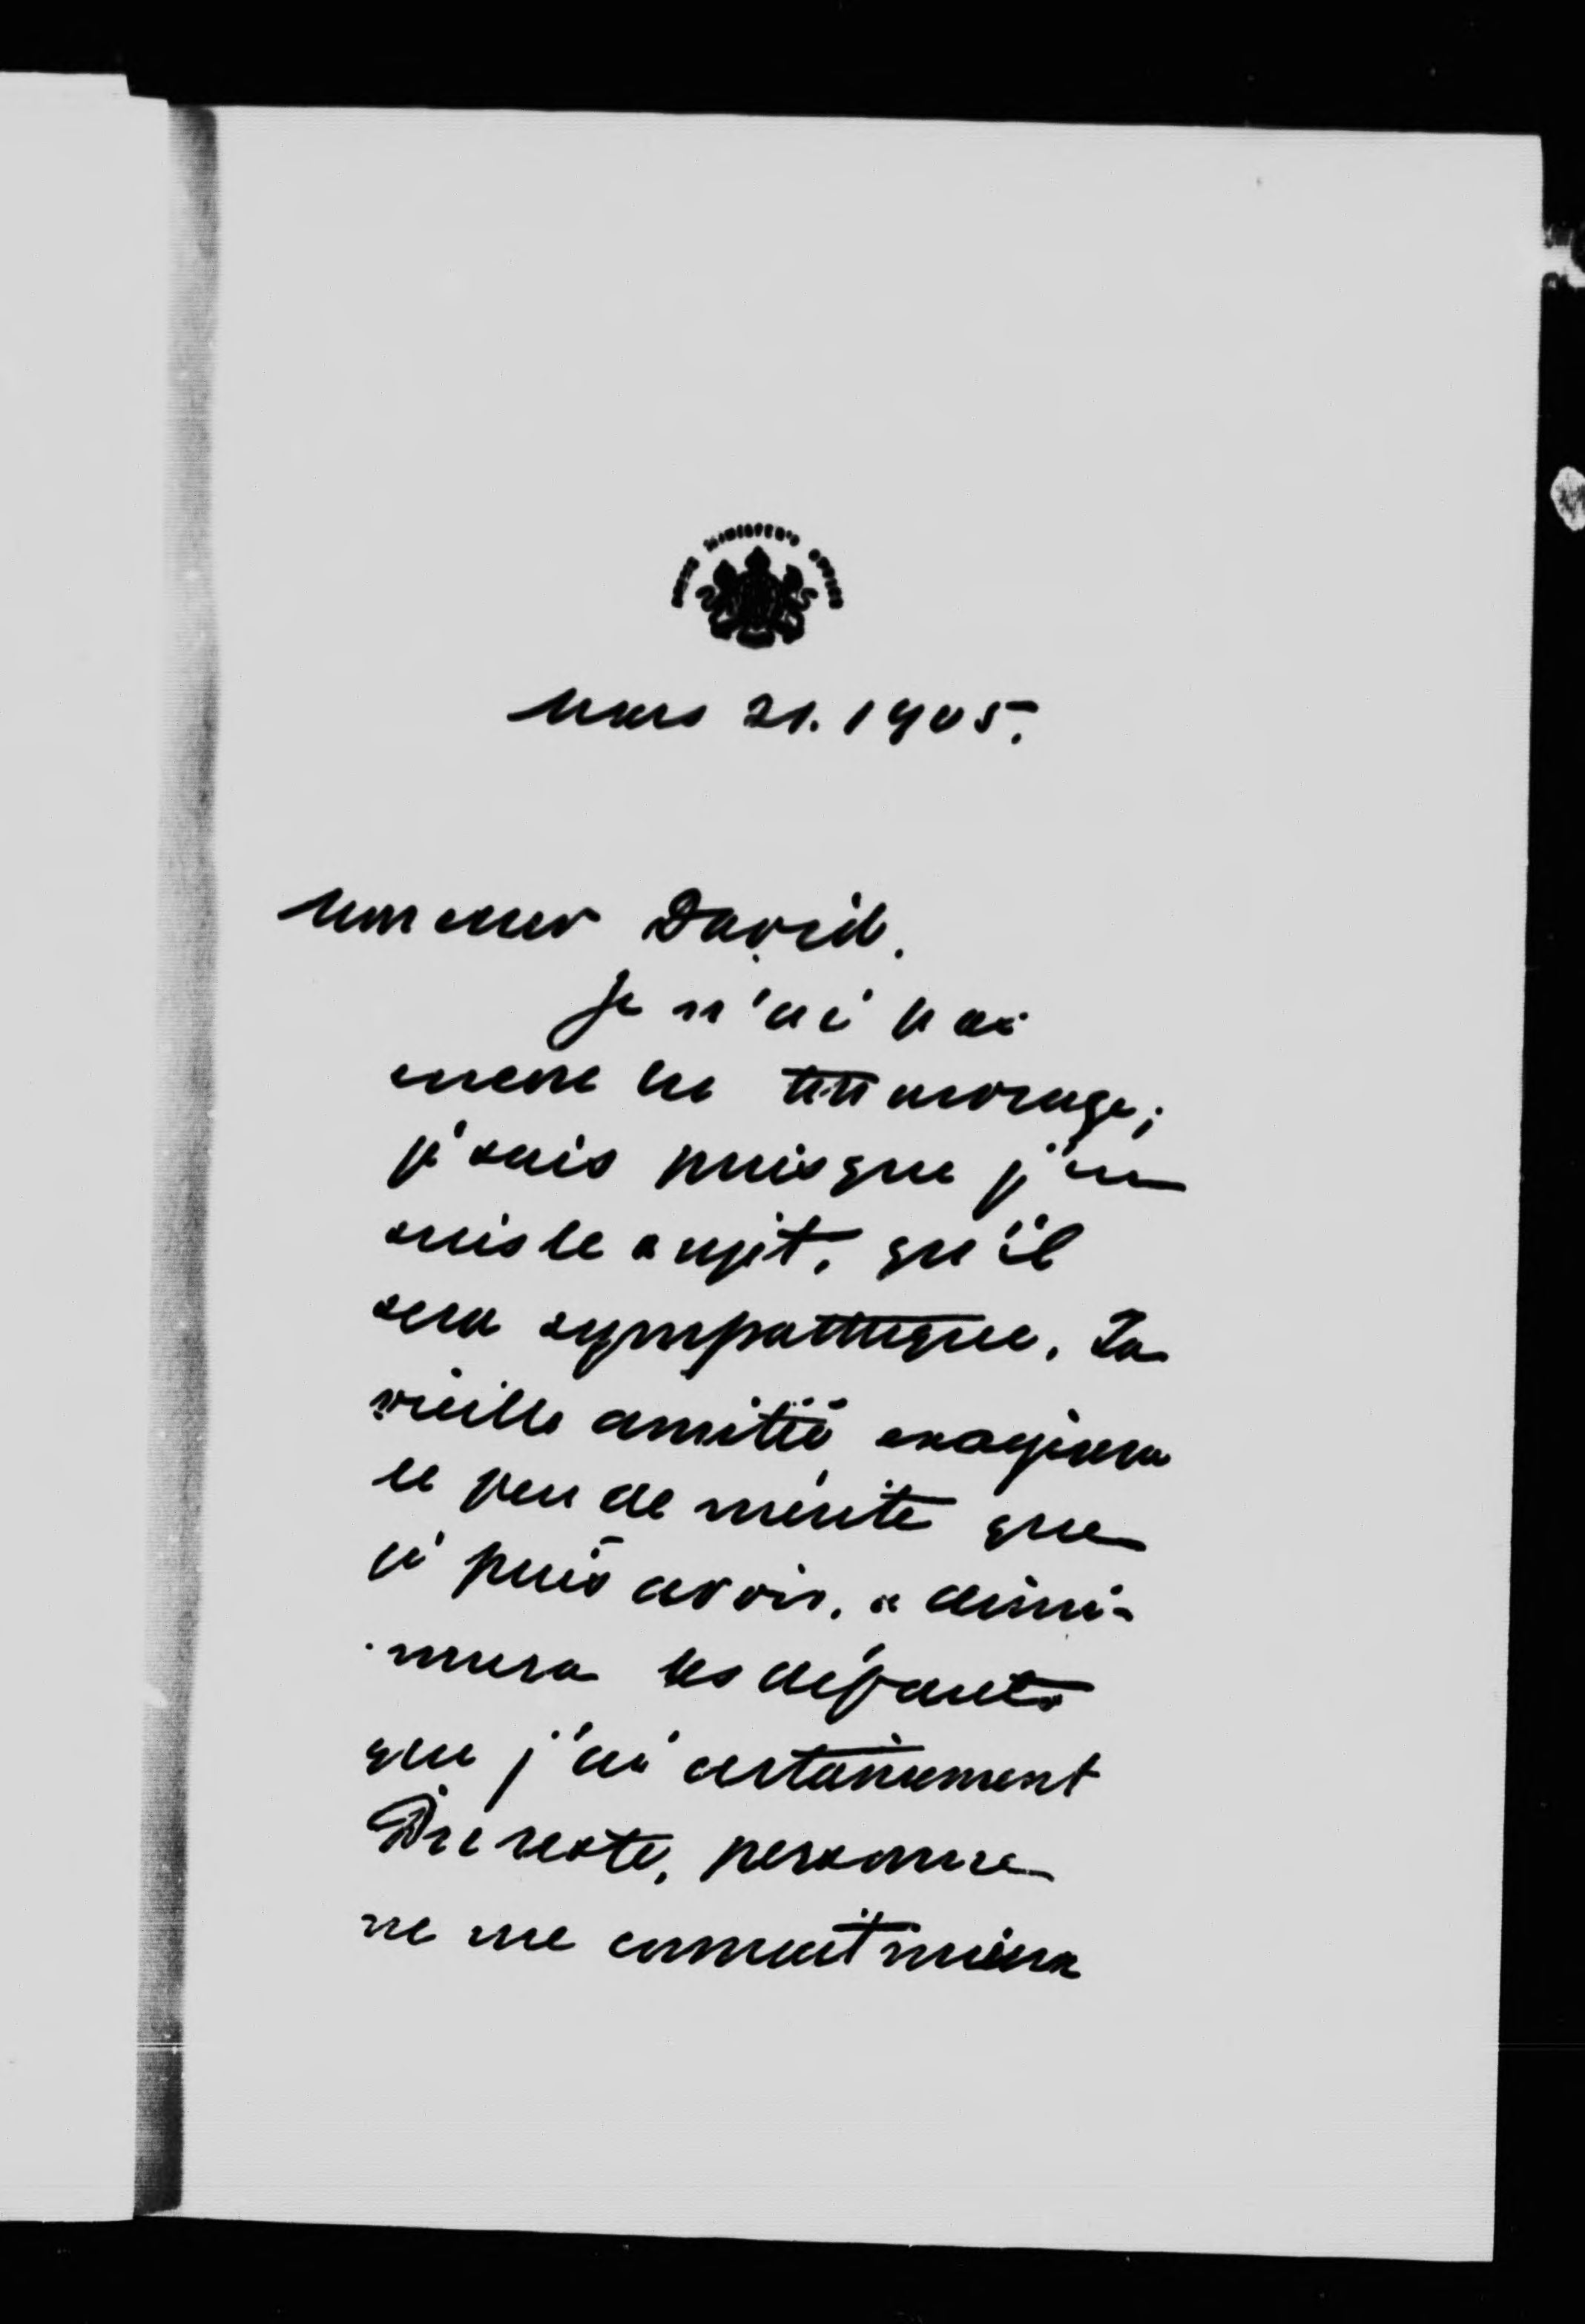 PRIME MINISTER'S OFFICE
Mars 21. 1905.
Mon cher David.
Je n'ai pas
encore lu ton ouvrage;
je sais puisque j'en
suis le sujet, qu'il
sera sympathique. Ta
vieille amitié exagèrera
le peu de mérite que
je puis avoir, & dimi-
nuera les défauts
que j'ai certainement
Du reste, personne
ne me connait mieux